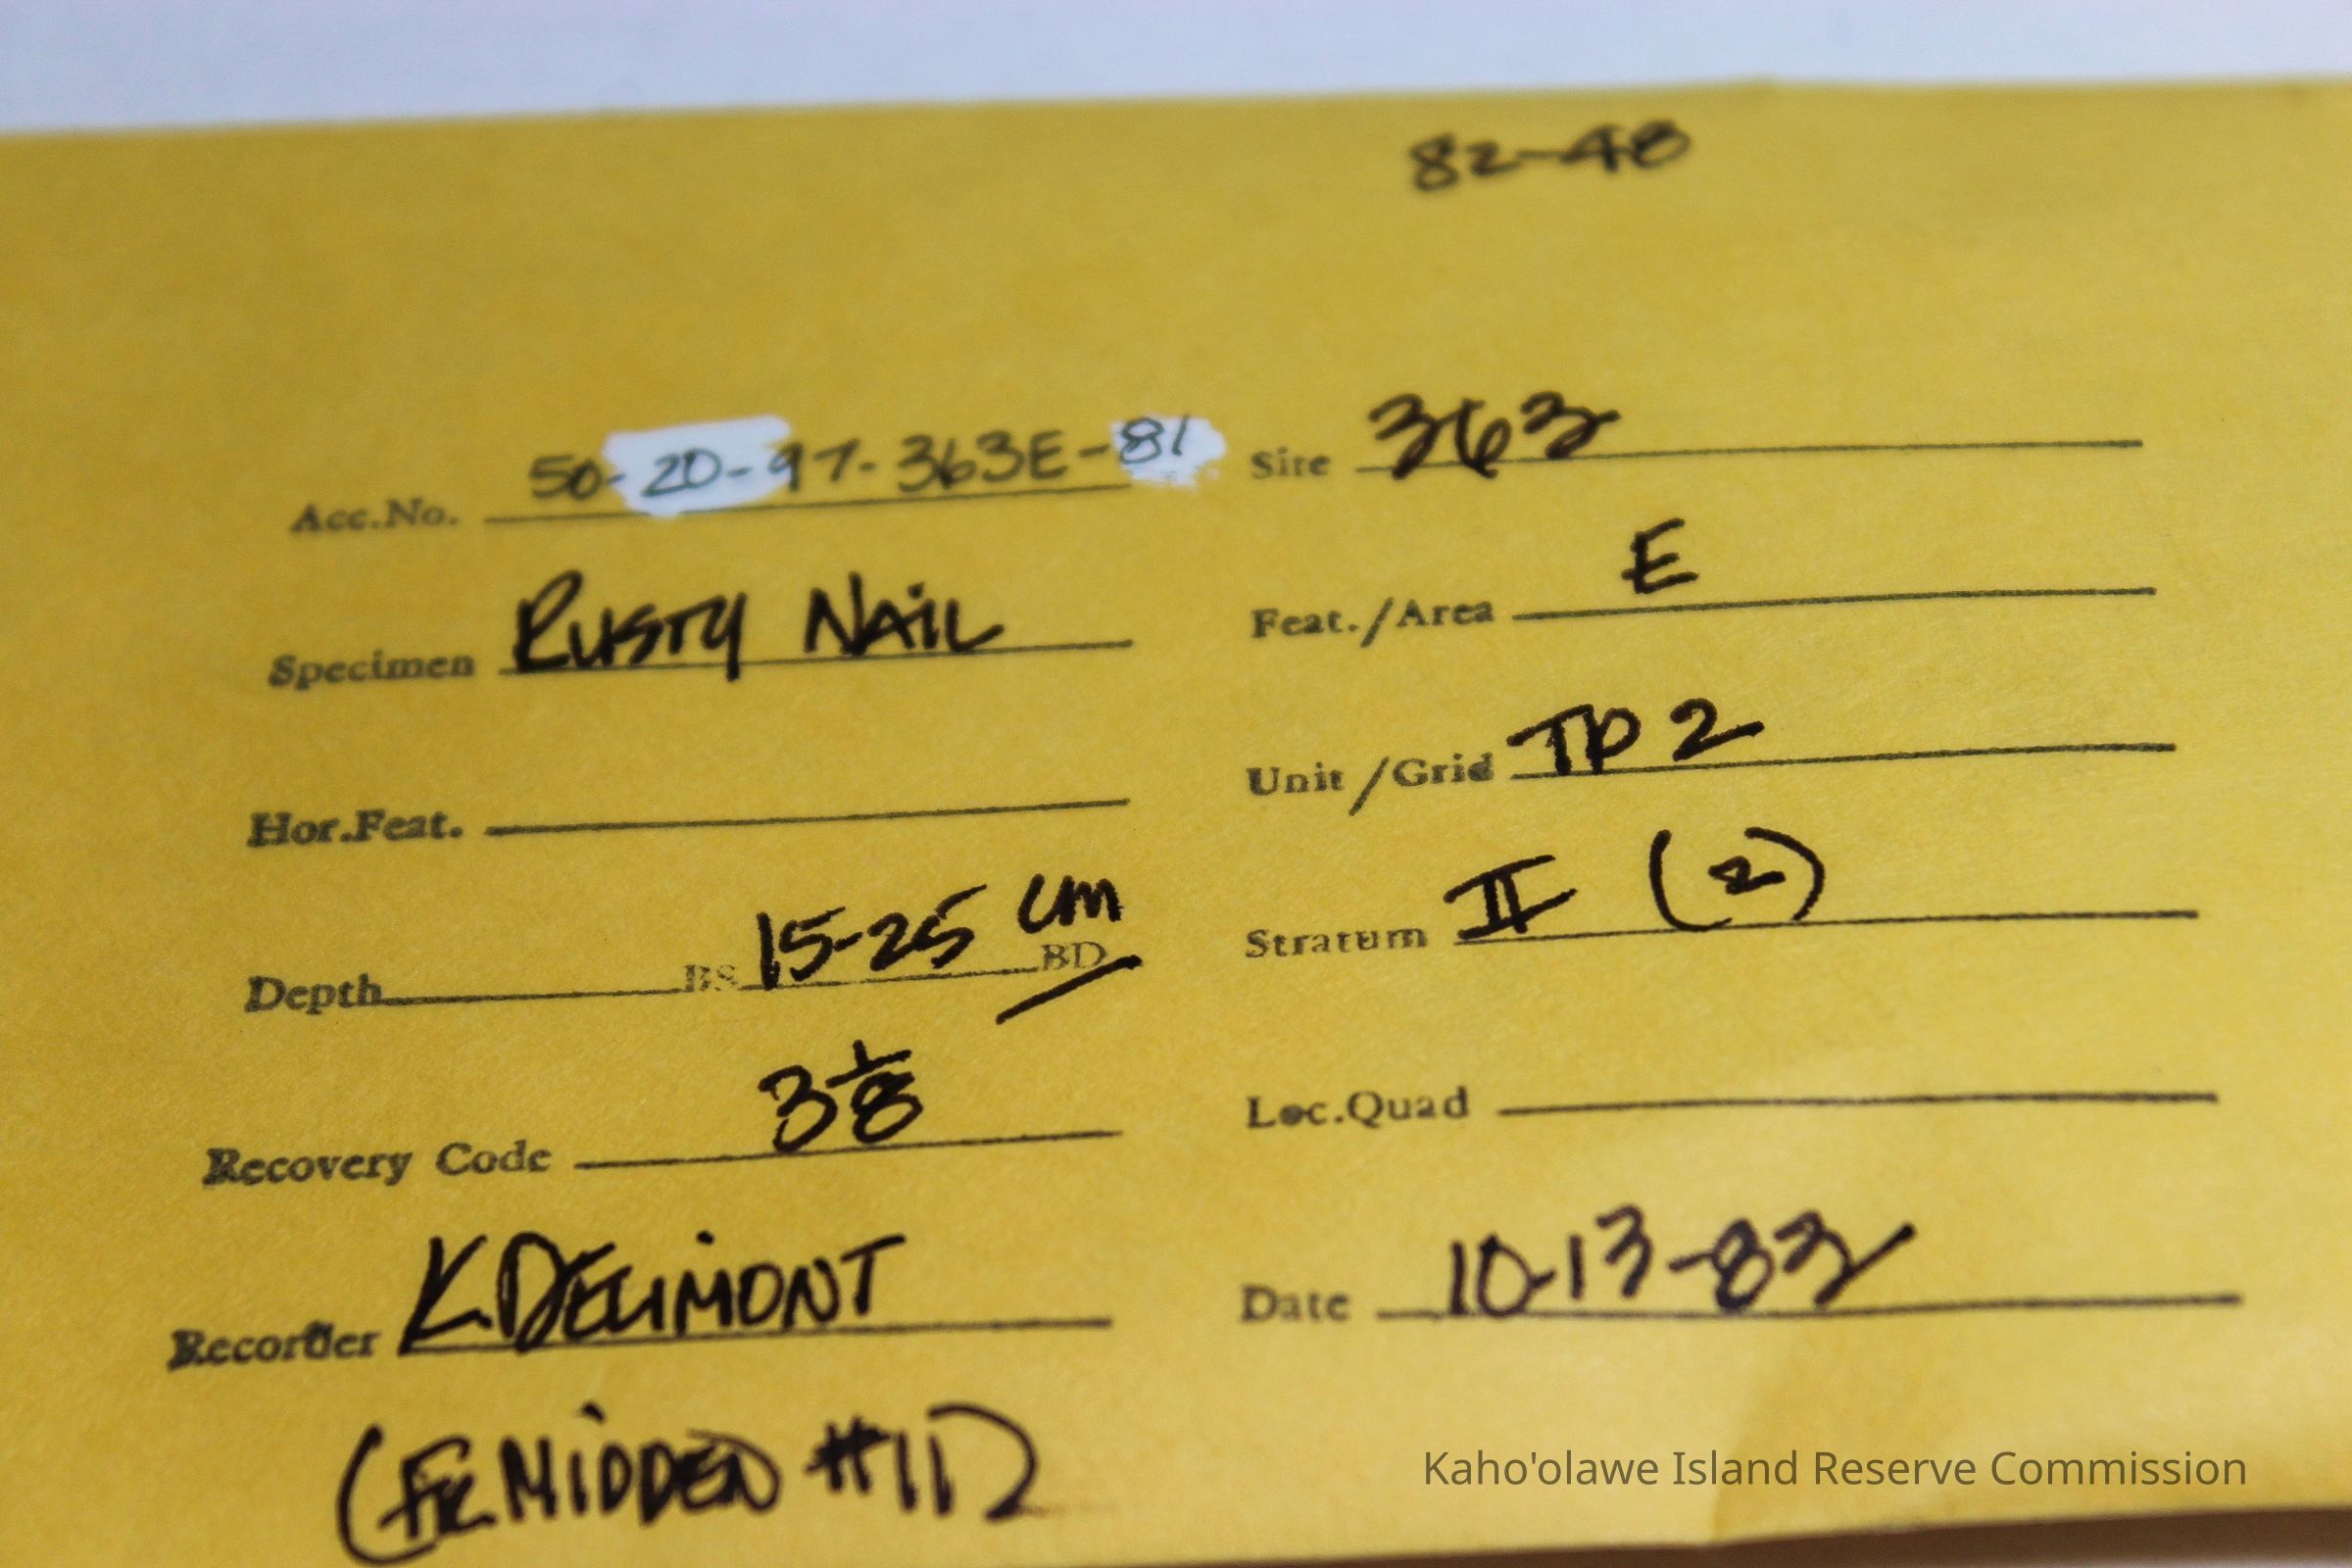 82-48
Acc.No. 50-20-97-363E-81 Site 363
Specimen Rusty Nail Feat./Area E
Hor.Feat. Unit/Grid TP 2
Depth BS 15-25 cm BD Stratum II (2)
Recovery Code 3 1/8 Loc.Quad
Recorder K Delimont Date 10-13-82
(Fr Midden #11)
Kaho'olawe Island Reserve Commission